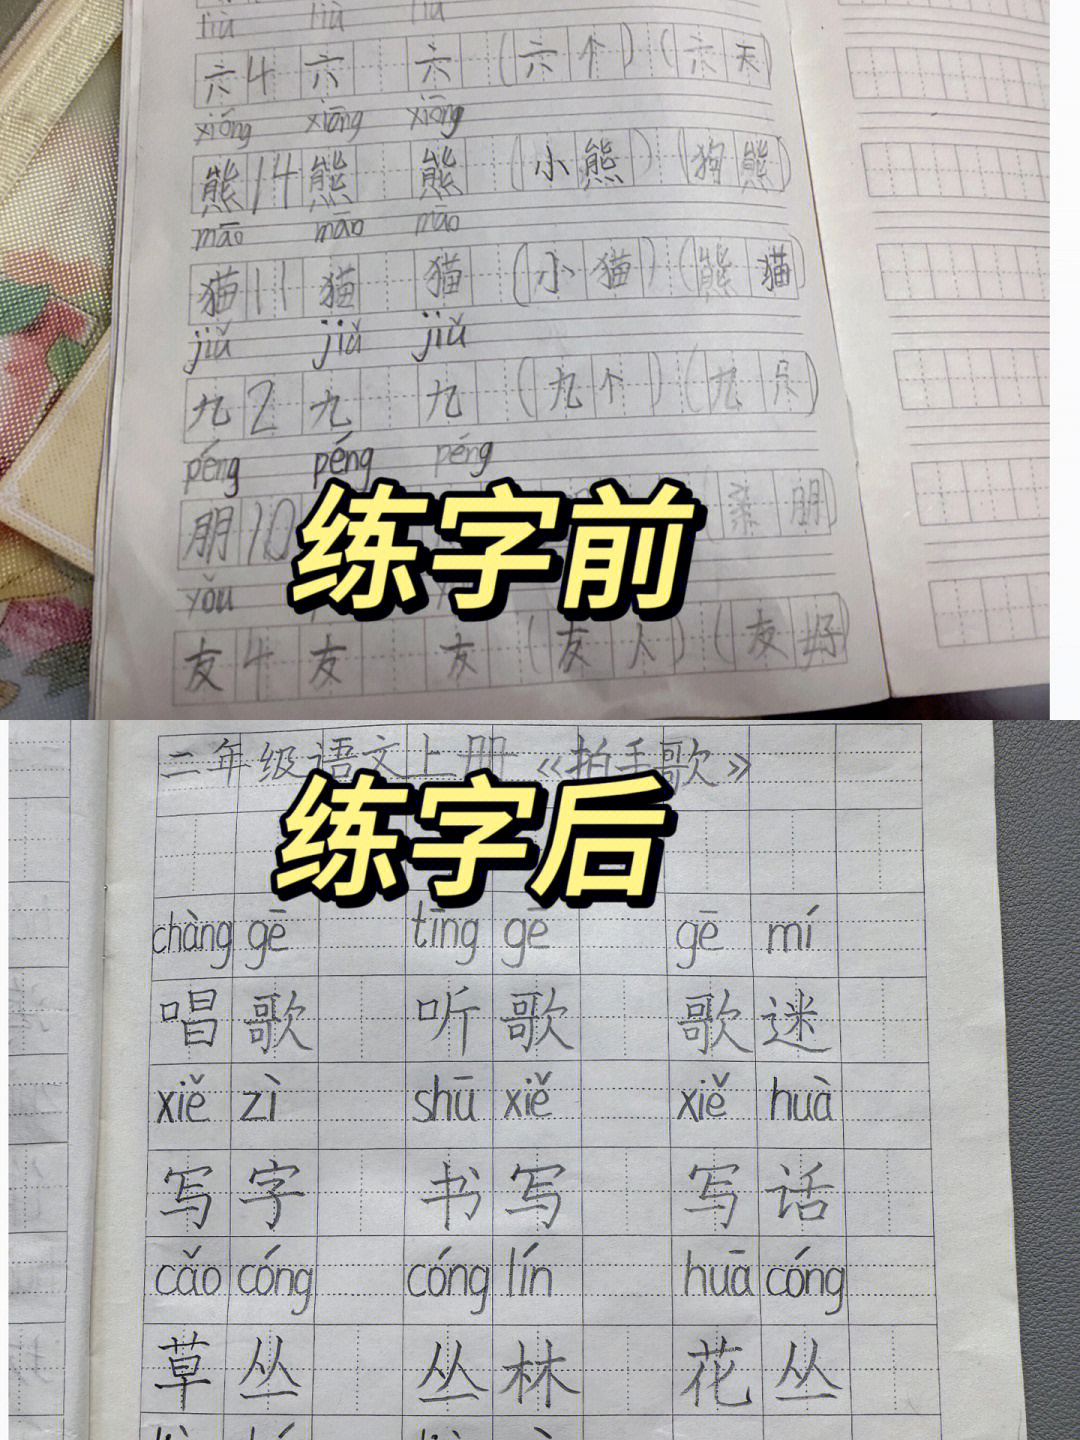 liù liù liù
六 4 六 六 (六个) (六天)
xióng xióng xióng
熊 14 熊 熊 (小熊) (狗熊)
māo māo māo
猫 11 猫 猫 (小猫) (熊猫)
jiǔ jiǔ jiǔ
九 2 九 九 (九个) (九只)
péng péng péng
朋 10 (亲朋)
练字前
yǒu
友 4 友 友 (友人) (友好)
二年级语文上册《拍手歌》
练字后
chàng gē tīng gē gē mí
唱歌 听歌 歌迷
xiě zì shū xiě xiě huà
写字 书写 写话
cǎo cóng cóng lín huā cóng
草丛 丛林 花丛